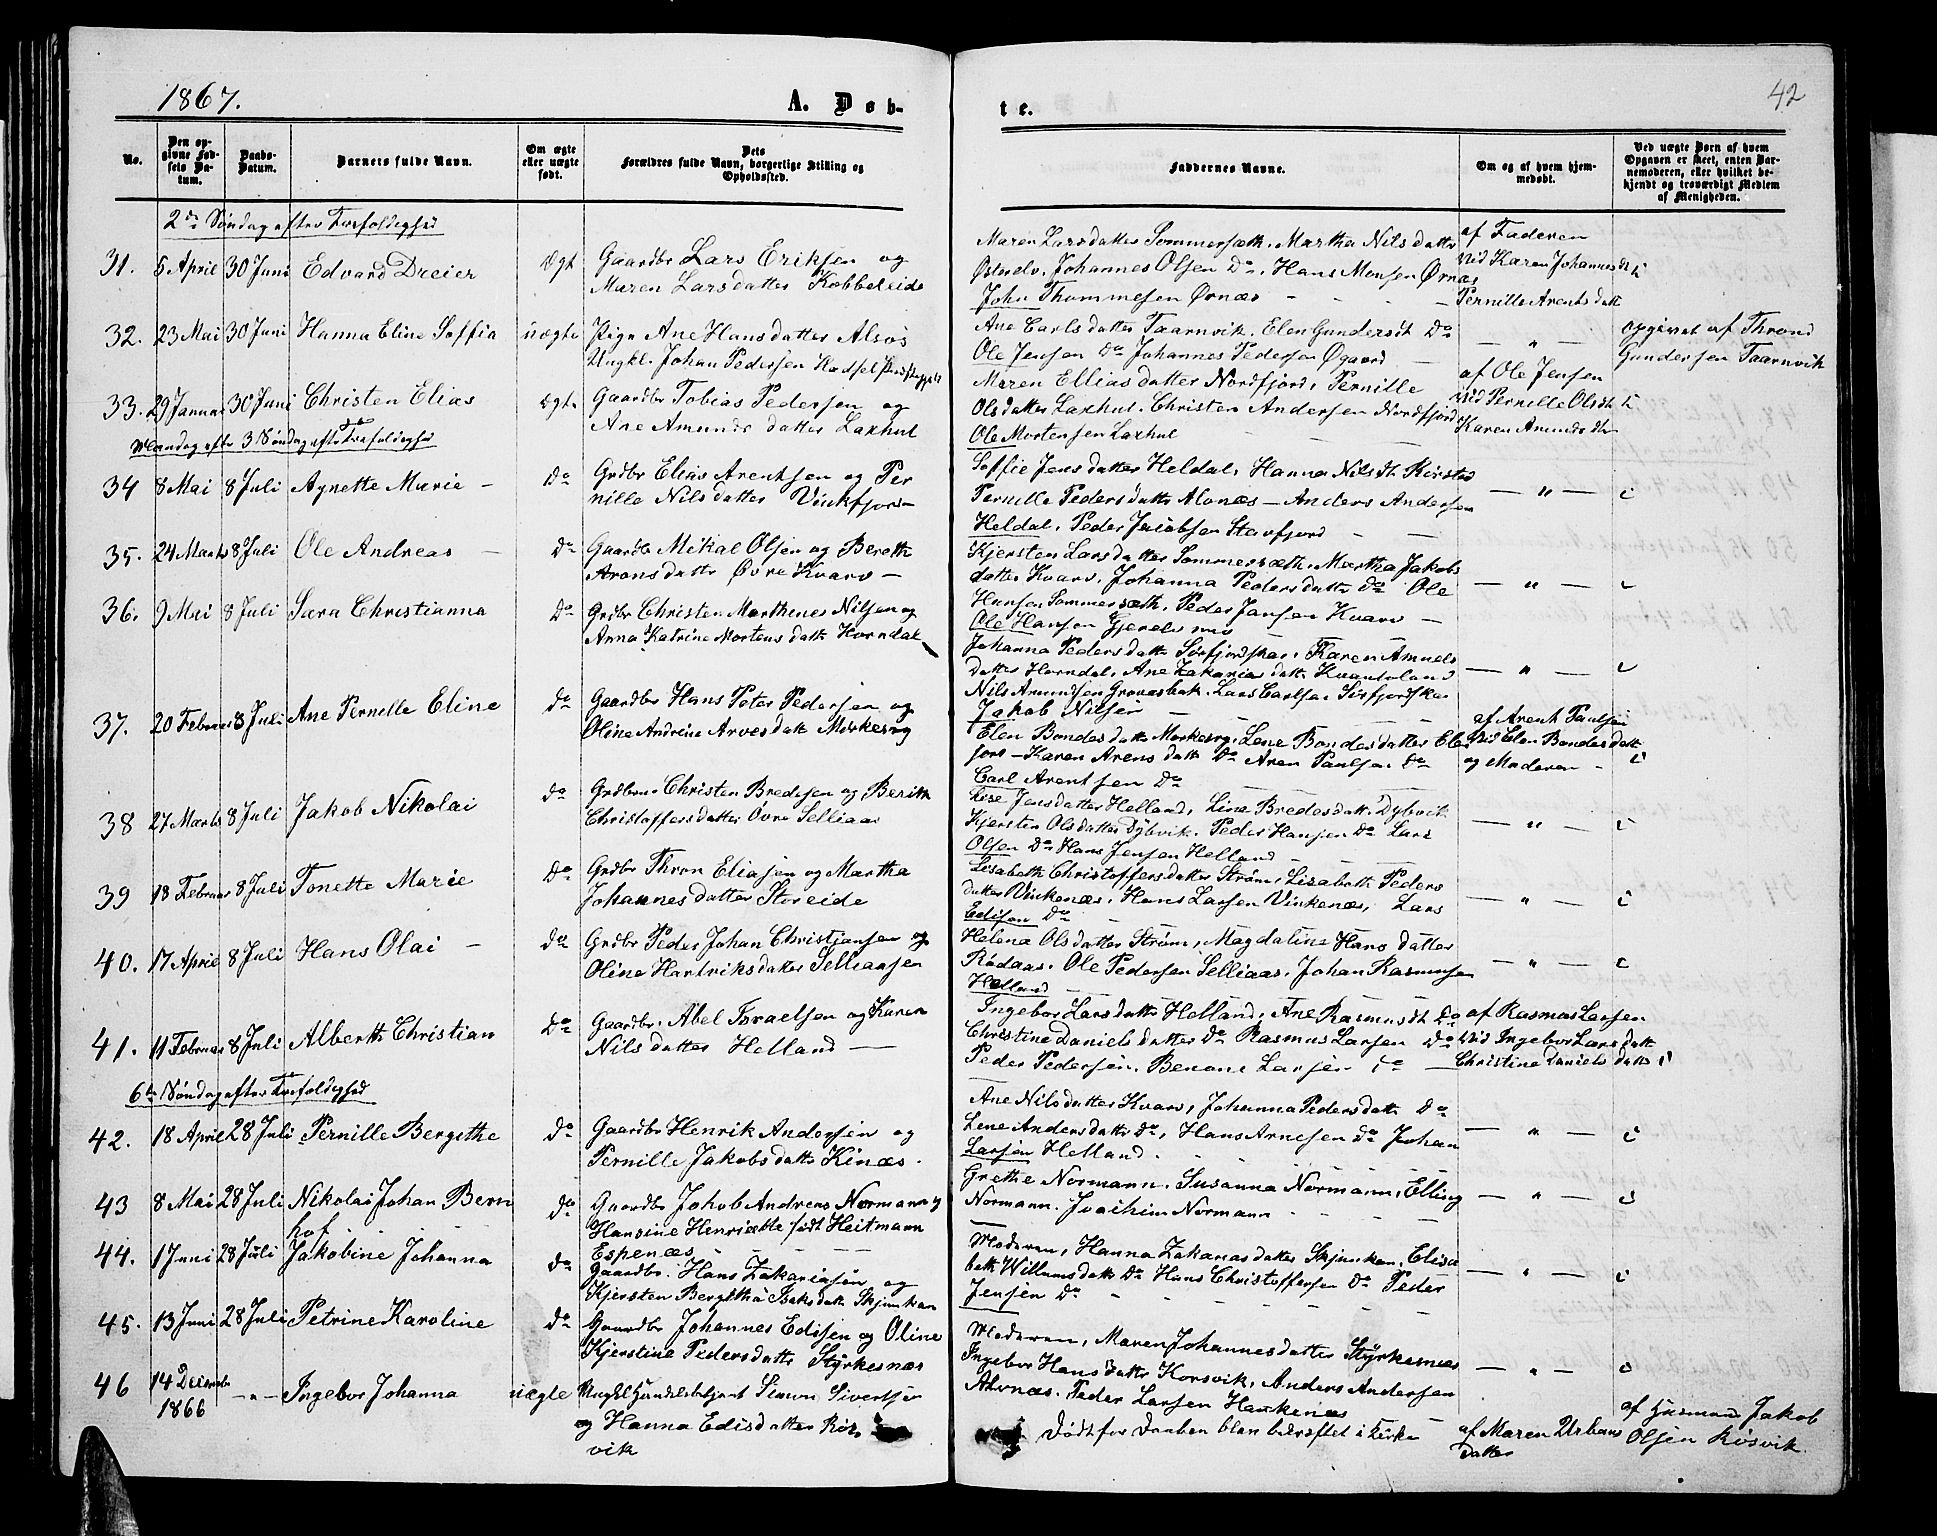 1867.
A. Døb-
te.
42
No.
Den op-
givne Fød-
sels Da-
tum.
Daabs-
Datum.
Barnets fulde Navn.
Om ægte
eller uægte
født.
Dets
Forældres fulde Navn, borgerlige Stilling og
Opholdssted.
Faddernes Navne.
Om og af hvem hjem-
medøbt.
Ved uægte Børn af hvem
Opgaven er skeet, enten Bar-
nemoderen, eller hvilket be-
kjendt og troværdigt Medlem
af Menigheden.
2den Søndag efter Trefoldighed
31. 5 April 30 Juni Edvard Dreier ægt Gaardbr Lars Eriksen og
Maren Larsdatter Kobbeleide
Maren Larsdatter Sommersæth. Martha Nilsdatter
Østerelv. Johannes Olsen Do. Hans Monsen Ørnæs
John Thommesen Ørnæs
af Faderen
ved Karen Johannesdt
Pernille Arentsdatt
32. 23 Mai 30 Juni Hanna Eline Soffia uægte Pige Ane Hansdatter Alsos
Ungkl. Johan Pedersen Hadsel
Ane Carlsdatter Taarnvik. Elen Gundersdt Do
Ole Jensen Do Johannes Pedersen Øgaard
— " —
opgivet af Thrond
Gundersen Taarnvik
33. 29 Januar 30 Juni Christen Elias ægt Gaardbr Tobias Pedersen og
Ane Amunds datter Laxhul
Maren Ellias datter Nordfjord, Pernille
Olsdatter Laxhul. Christen Andersen Nordfjord
Ole Mortensen Laxhul
af Ole Jensen
ved Pernille Olsdt
Karen Amundsdtr
Mandag efter 3 Søndag efter Trefoldighed
34 8 Mai 8 Juli Agnette Marie — Do Grdbr Elias Arentsen og Per
nille Nilsdatter Vinkfjord
Soffie Jensdatter Heldal. Hanna Nilsdt
Pernille Pedersdatt Alvnæs — Anders Andersen
Heldal. Peder Jacobsen Stavfjord
— " —
35. 24 Marts 8 Juli Ole Andreas — Do Gaardbr Mikal Olsen og Bereth
Aronsdatt Øvre Kvarv —
Kjersten Larsdatter Sommersæth. Martha Jakobs
datter Kvarv. Johanna Pedersdatt do Ole
Hansen Sommersæth. Peder Jansen Kvarv —
Ole Hansen Gjerdelvmo
— " —
36. 9 Mai 8 Juli Sara Christianna Do Grdbr Christen Marthines Nilsen og
Anna Katrine Mortensdatt Horndal
Johanna Pedersdatt Sørfjordskar. Karen Amuels
datter Horndal. Ane Zakarias datt Kvantoland
Nils Amundsen Grovasbak. Lars Carlsen Sørfjordskar
Jakob Nilsen
— " —
37. 20 Februar 8 Juli Ane Pernille Eline Do Gaardbr Hans Peter Pedersen og
Oline Andrine Arvesdatt Mørkesvg
Elen Bendesdatt Mørkesvg, Lene Bondesdatter Else
fjord — Karen Arensdatt Do Aren Paulsen Do
Carl Arentsen Do
af Arent Paulsen
ved Elen Bondesdatt
og Moderen —
38 27 Marts 8 Juli Jakob Nikolai Do Grdbrn. Christen Bredesen og Berith
Christoffersdatter Øvre Selliaas
Lise Jensdatter Helland, Line Bredesdatt. Dybvik
Kjersten Olsdatter Dybvik. Peder Hansen Do Lars
Olsen Do Hans Jensen Helland
— " —
39 18 Februar 8 Juli Tonette Marie Do Grdbr Thron Eliasen og Martha
Johannesdatter Storeide
Lisabeth Christoffersdatter Strøm, Lisabeth Peders
datter Vinkenæs, Hans Larsen Vinkenæs, Lars
Edisen Do
— " —
40. 17 April 8 Juli Hans Olai — Do Grdbr Peder Johan Christiansen og
Oline Hartviksdatter Selliaasen
Helena Olsdatter Strøm, Magdaline Hans datter
Rødaas. Ole Pedersen Selliaas. Johan Rasmusen
Helland
— " —
41. 11 Februar 8 Juli Alberth Christian Do Gaardbr. Abel Israelsen og Karen
Nilsdatter Helland —
Ingebor Larsdatt Helland, Ane Rasmusdt Do
Christine Daniels datter Do Rasmus Larsen Do
Peder Pedersen. Benone Larsen Do
af Rasmus Larsen
ved Ingebor Larsdatt
Christine Daniels datt
6te Søndag efter Trefoldighed
42. 18 April 28 Juli Pernille Bergithe Do Gaardbr Henrik Andersen og
Pernille Jakobsdatt Kinæs.
Ane Nilsdatter Kvarv, Johanna Pedersdatt Do
Lene Andersdatt Do, Hans Arnesen Do Johan
Larsen Helland.
— " —
43 8 Mai 28 Juli Nikolai Johan Bern
hof
Do Gaardbr Jakob Andreas Normann og
Hansine Henriette født Heitmann
Espenæs
Grethe Normann. Susanna Normann, Elling
Normann. Joachim Normann
— " —
44. 1 Juni 28 Juli Jakobine Johanna Do Gaardbr. Hans Zakariasen og
Kjersten Bergitha Isaksdatt Skjunkan
Moderen, Hanna Zakariasdatter Skjunken, Elisa
beth Willumsdatt Do Hans Christoffersen Do Peder
Jensen Do
— " —
45. 13 Juni 28 Juli Petrine Karoline Do Gaardbr Johannes Edisen og Oline
Kjerstine Pedersdatt Styrkesnæs
Moderen, Maren Johannesdatter Styrkesnæs
Ingebor Hansdatter Korsvik, Anders Andersen
Alvnæs. Peder Larsen Hankenæs
— " —
46 14 Decemb
1866
— " — Ingebor Johanna uægte Ungkl Handelsbetjent Simon Sivertsen
og Hanna Edisdatter Røs
vik
Dødt før Daaben blev bekræftet i Kirke
af Maren Urbans
datter
af Husmand Jakob
Olsen Røsvik.